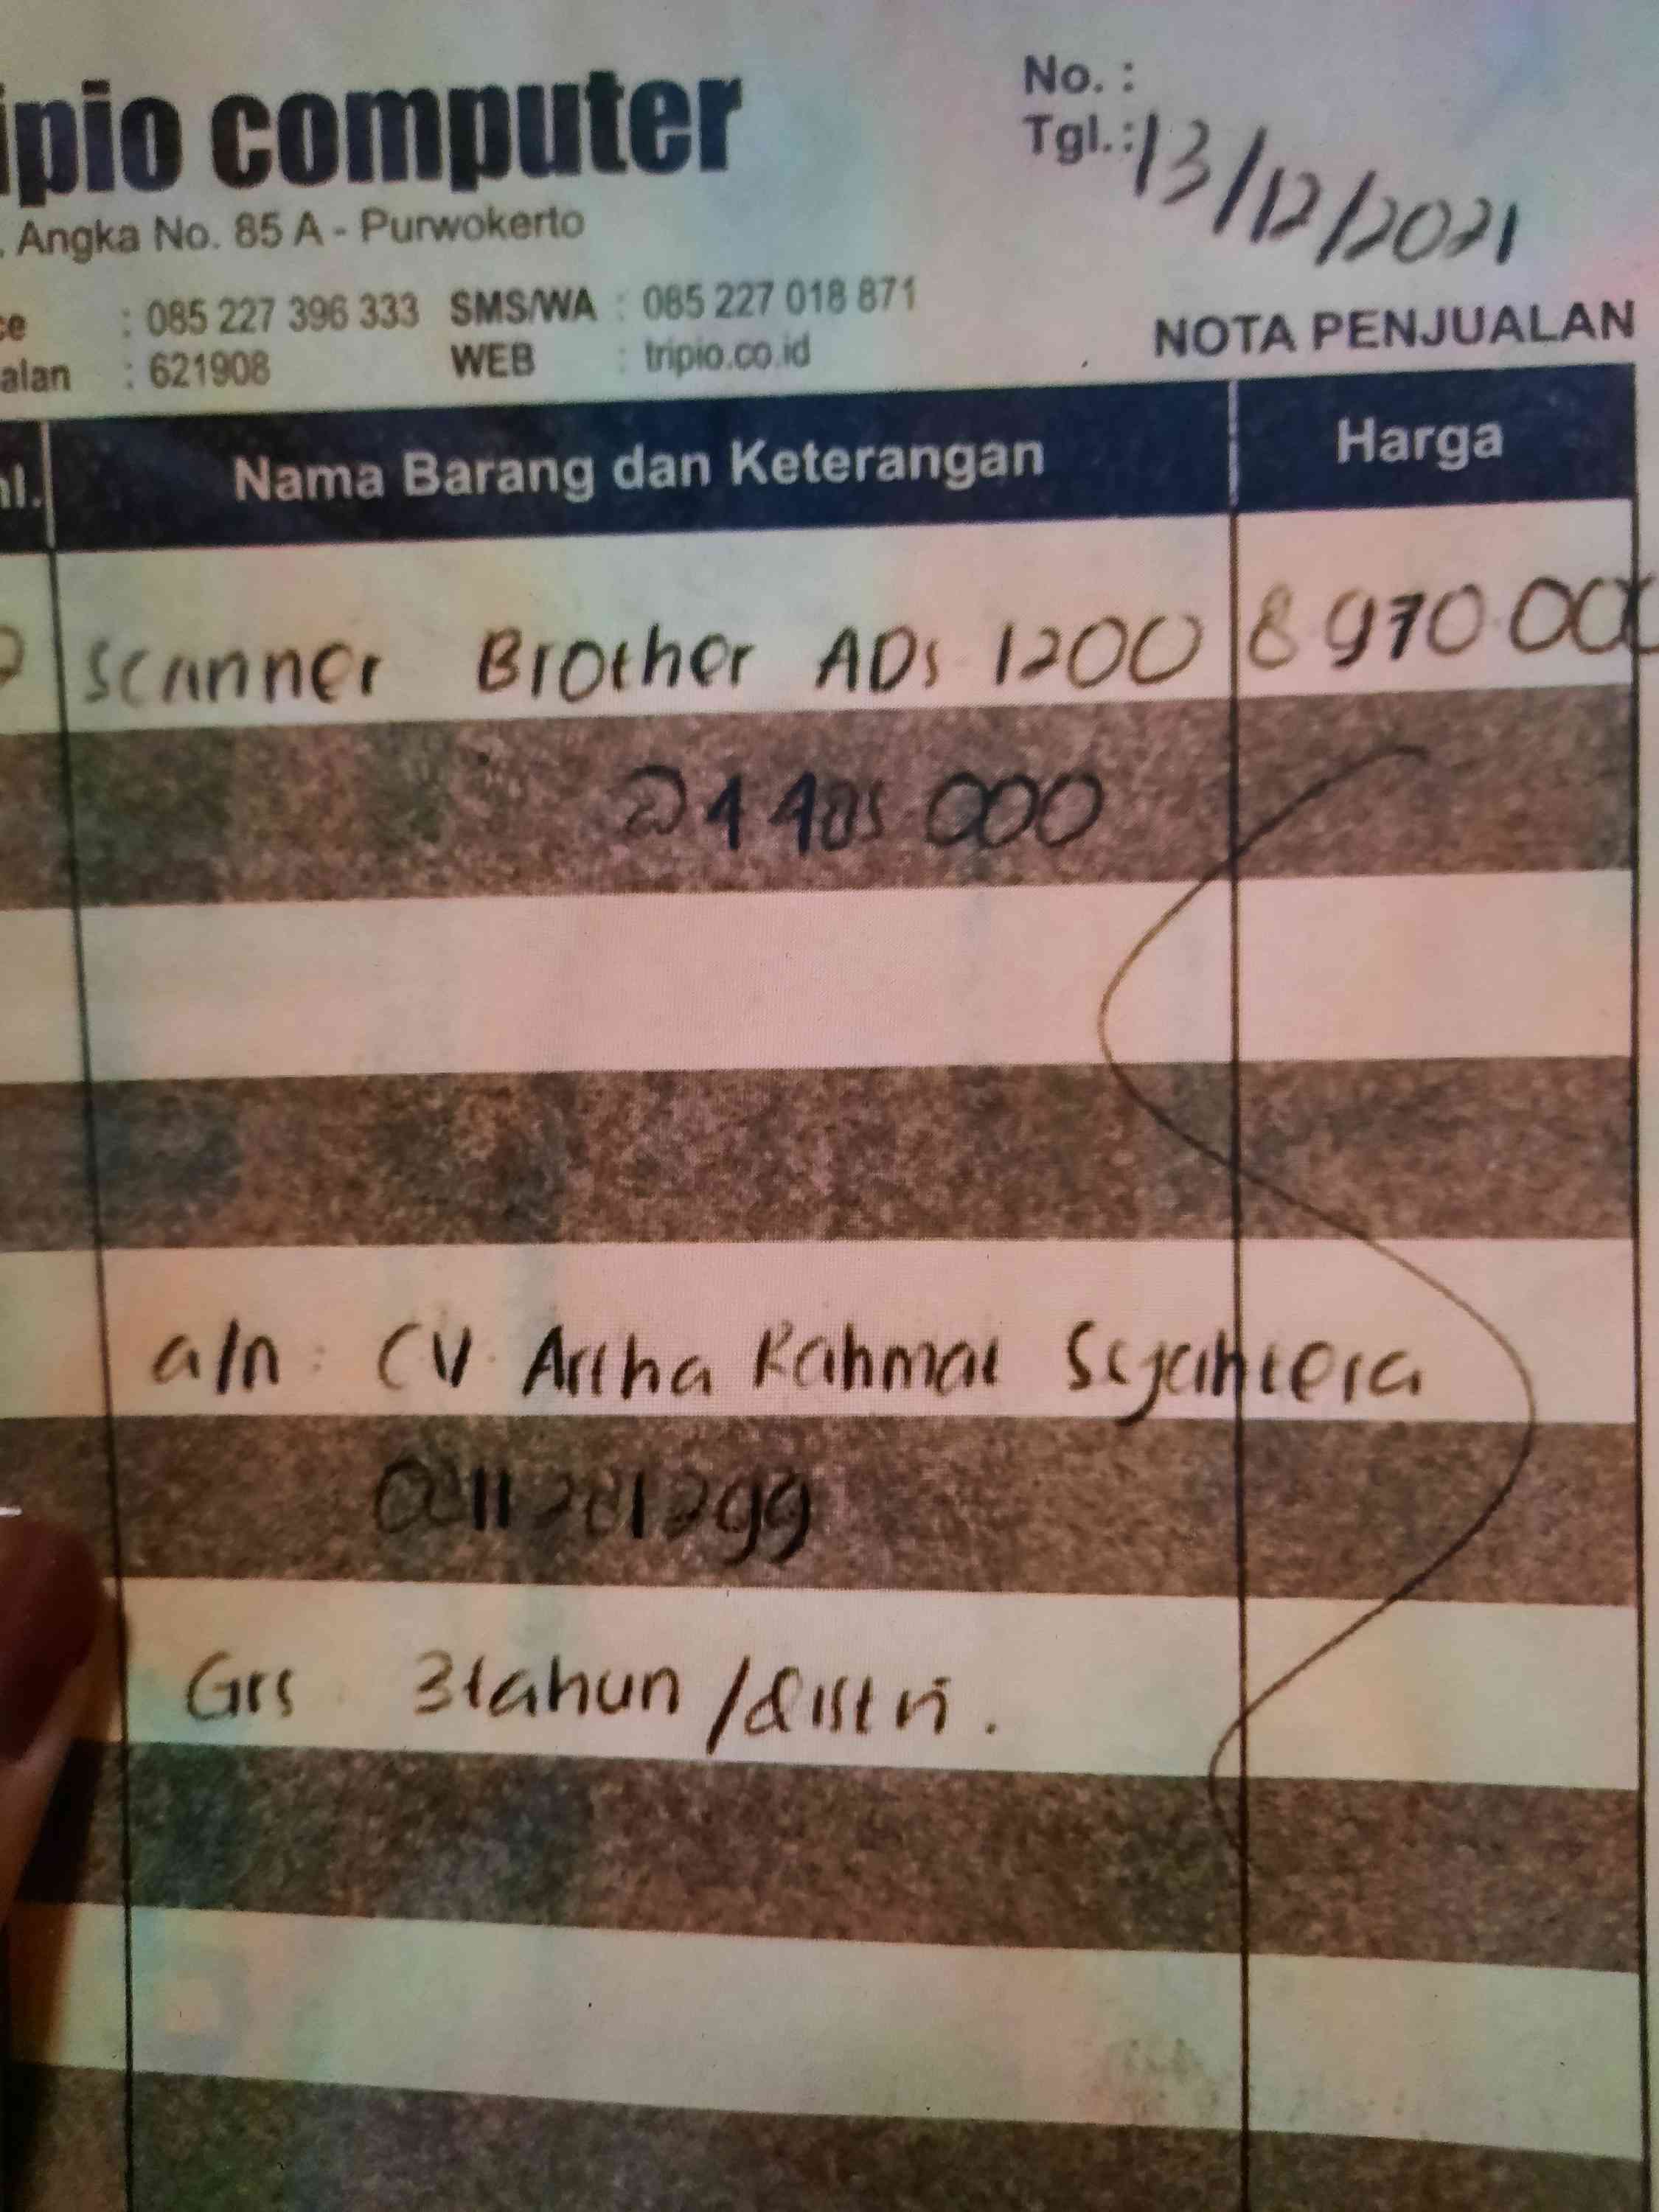 ipio computer
No. :
Tgl. : 13/12/2021
. Angka No. 85 A - Purwokerto
ce : 085 227 396 333 SMS/WA : 085 227 018 871
alan : 621908 WEB : tripio.co.id
NOTA PENJUALAN
Nama Barang dan Keterangan Harga
2 Scanner Brother ADs 1200 8 970.000
a/n : CV. Artha Rahmat Sejahtera
Grs 3tahun /distri.